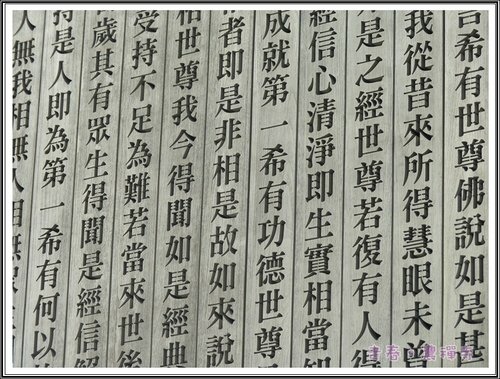 言希有世尊佛說如是甚
我從昔來所得慧眼未曾
是之經世尊若復有人得
經信心清淨即生實相當知
成就第一希有功德世尊
者即是非相是故如來說
相世尊我今得聞如是經典
受持不足為難若當來世後
歲其有眾生得聞是經信解
持是人即為第一希有何以
人無我相無人相無眾